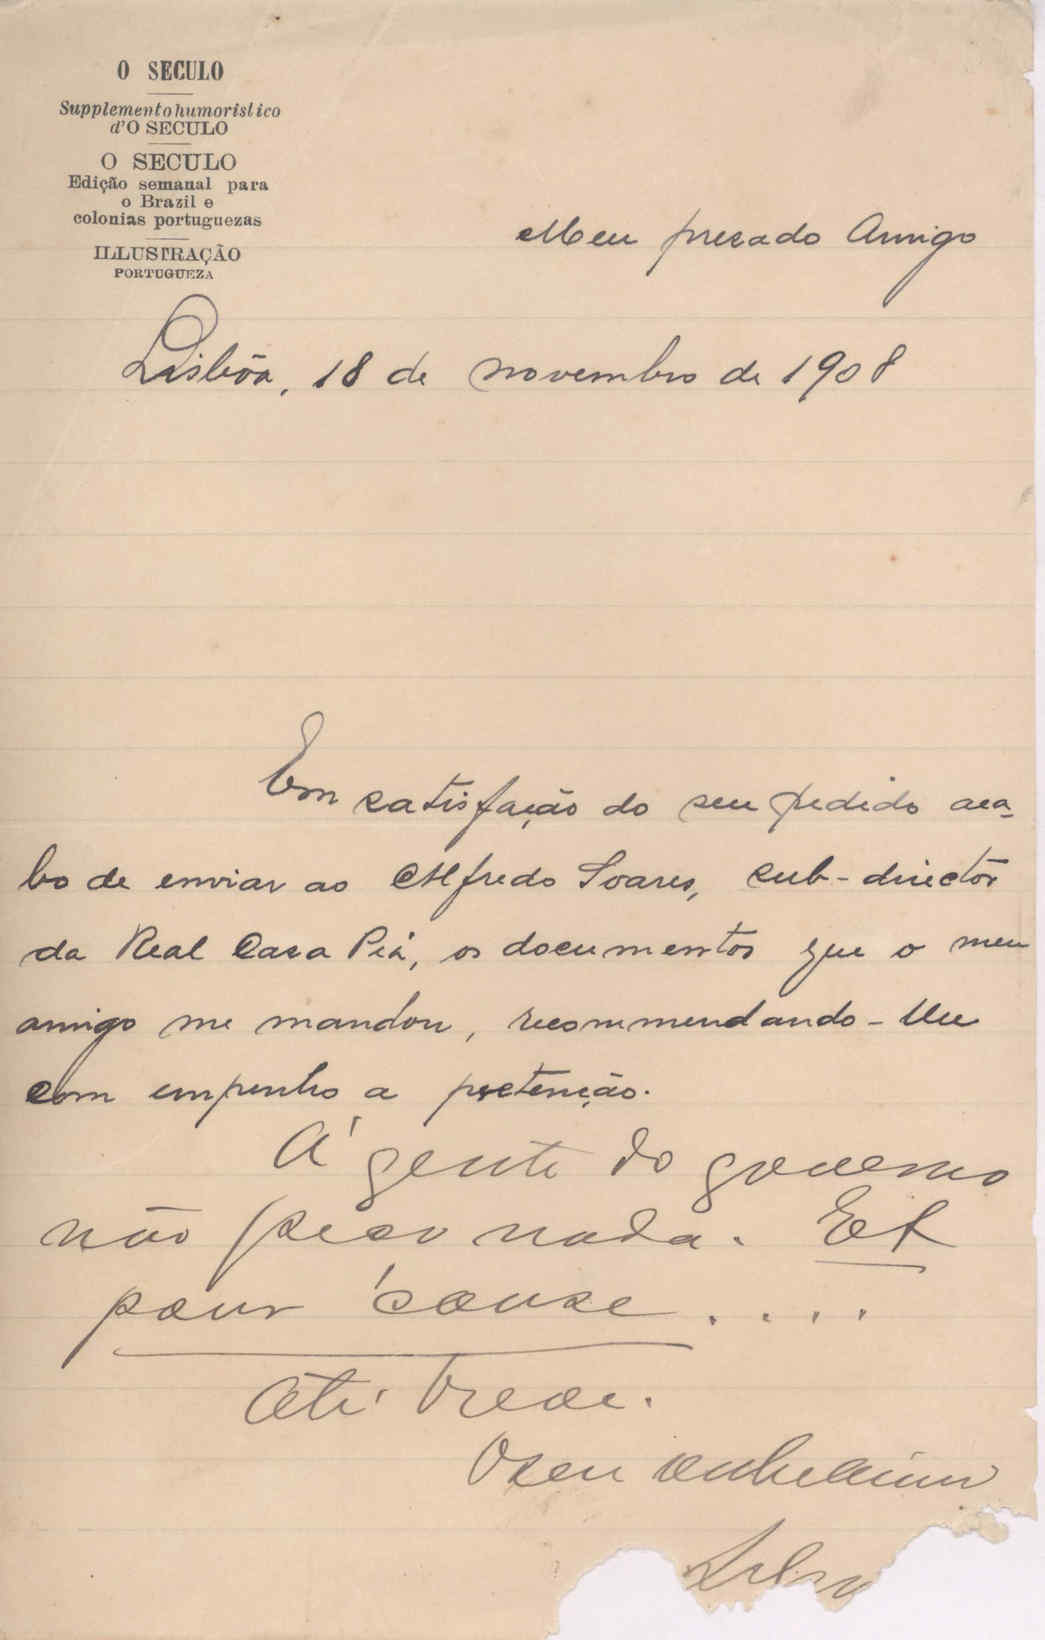 O SECULO
Supplemento humoristico
d'O SECULO
O SECULO
Edição semanal para
o Brazil e
colonias portuguezas
ILLUSTRAÇÃO
PORTUGUEZA
Meu presado Amigo
Lisbôa, 18 de novembro de 1908
Em satisfação do seu pedido aca-
bo de enviar ao Alfredo Soares, sub-director
da Real Casa Pia, os documentos que o meu
amigo me mandou, recommendando-lhe
com empenho a pretenção.
Á gente do governo
não peço nada. Et
pour cause....
Até breve.
O seu